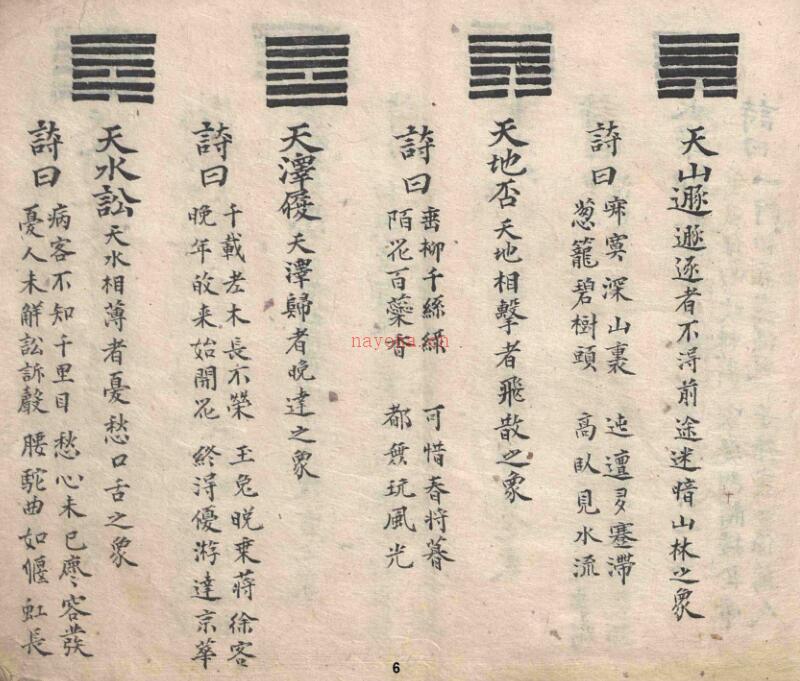 天山遯遯逐者不淂前途迷暗山林之象
詩曰
寂寞深山裏 迍邅多蹇滯
葱籠碧樹頭 高臥見水流
天地否天地相擊者飛散之象
詩曰
垂柳千絲綠 可惜春將暮
陌花百藥香 都無玩風光
天澤履天澤歸者晚達之象
詩曰
千載老木長不榮 玉兔晚乗蔣徐客
晚年的来始開花 終淂優游達京華
天水訟天水相薄者憂愁口舌之象
詩曰
病客不知千里目 愁心未已廖容發
憂人未觧訟訴聲 腰駝曲如偃虹長
nayona.cn
6